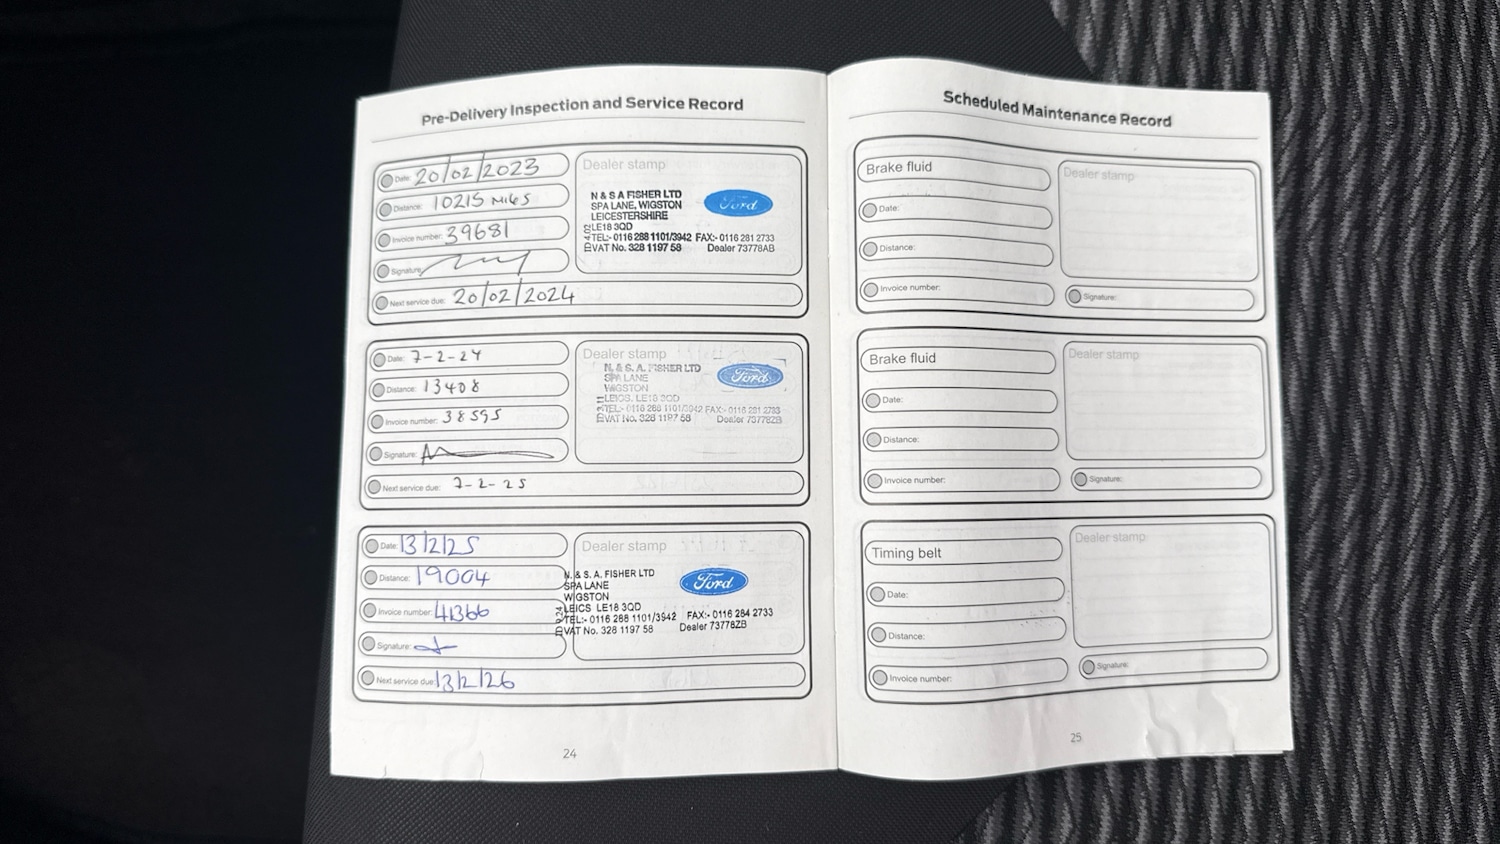 Pre-Delivery Inspection and Service Record
Date: 20/02/2023
Distance: 10215 MILES
Invoice number: 39681
Signature:
Next service due: 20/02/2024
Dealer stamp
N & S A FISHER LTD
SPA LANE, WIGSTON
LEICESTERSHIRE
LE18 3QD
TEL:- 0116 288 1101/3942 FAX:- 0116 281 2733
VAT No. 328 1197 58 Dealer 73778AB
Ford
Date: 7-2-24
Distance: 13408
Invoice number: 38595
Signature:
Next service due: 7-2-25
Dealer stamp
N. & S. A. FISHER LTD
SPA LANE
WIGSTON
LEICS. LE18 3QD
TEL:- 0116 288 1101/3942 FAX:- 0116 281 2733
VAT No. 328 1197 58 Dealer 73778ZB
Ford
Date: 13/2/25
Distance: 19004
Invoice number: 41366
Signature:
Next service due: 13/2/26
Dealer stamp
N. & S. A. FISHER LTD
SPA LANE
WIGSTON
LEICS LE18 3QD
TEL:- 0116 288 1101/3942 FAX:- 0116 284 2733
VAT No. 328 1197 58 Dealer 73778ZB
Ford
24
Scheduled Maintenance Record
Brake fluid
Date:
Distance:
Invoice number:
Dealer stamp
Signature:
Brake fluid
Date:
Distance:
Invoice number:
Dealer stamp
Signature:
Timing belt
Date:
Distance:
Invoice number:
Dealer stamp
Signature:
25